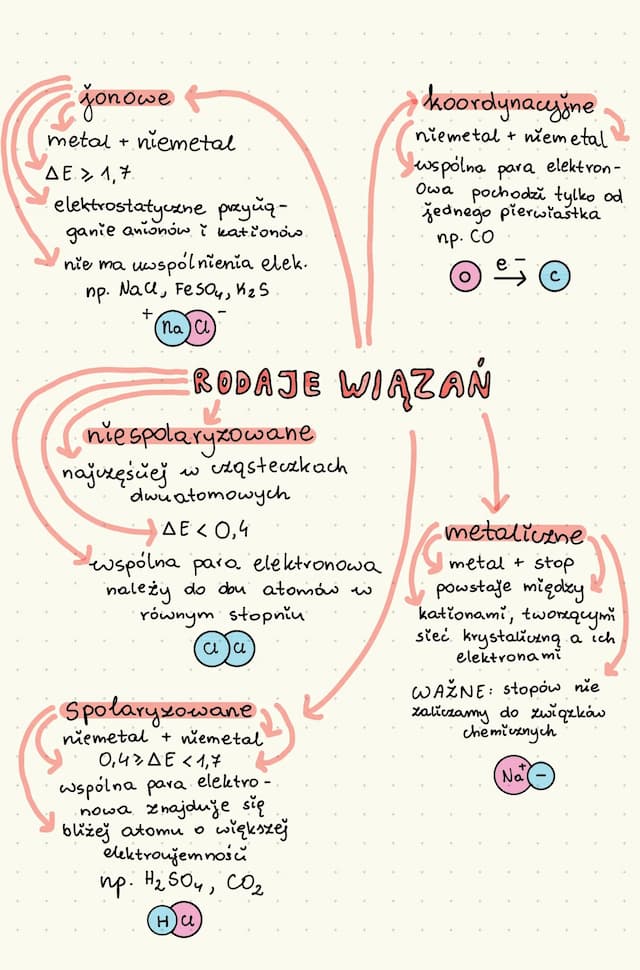 jonowe
metal + niemetal
ΔE ≥ 1,7
elektrostatyczne przycią-
ganie anionów i kationów
nie ma uwspólnienia elek.
np. NaCl, FeSO₄, K₂S
+ Na Cl -
koordynacyjne
niemetal + niemetal
wspólna para elektron-
owa pochodzi tylko od
jednego pierwiastka
np. CO
O e⁻ → C
RODAJE WIĄZAŃ
niespolaryzowane
najczęściej w cząsteczkach
dwuatomowych
ΔE < 0,4
wspólna para elektronowa
należy do obu atomów w
równym stopniu
Cl Cl
metaliczne
metal + stop
powstaje między
kationami, tworzącymi
sieć krystaliczną a ich
elektronami
WAŻNE: stopów nie
zaliczamy do związków
chemicznych
Na⁺ -
spolaryzowane
niemetal + niemetal
0,4 ≥ ΔE < 1,7
wspólna para elektro-
nowa znajduje się
bliżej atomu o większej
elektroujemności
np. H₂SO₄, CO₂
H Cl